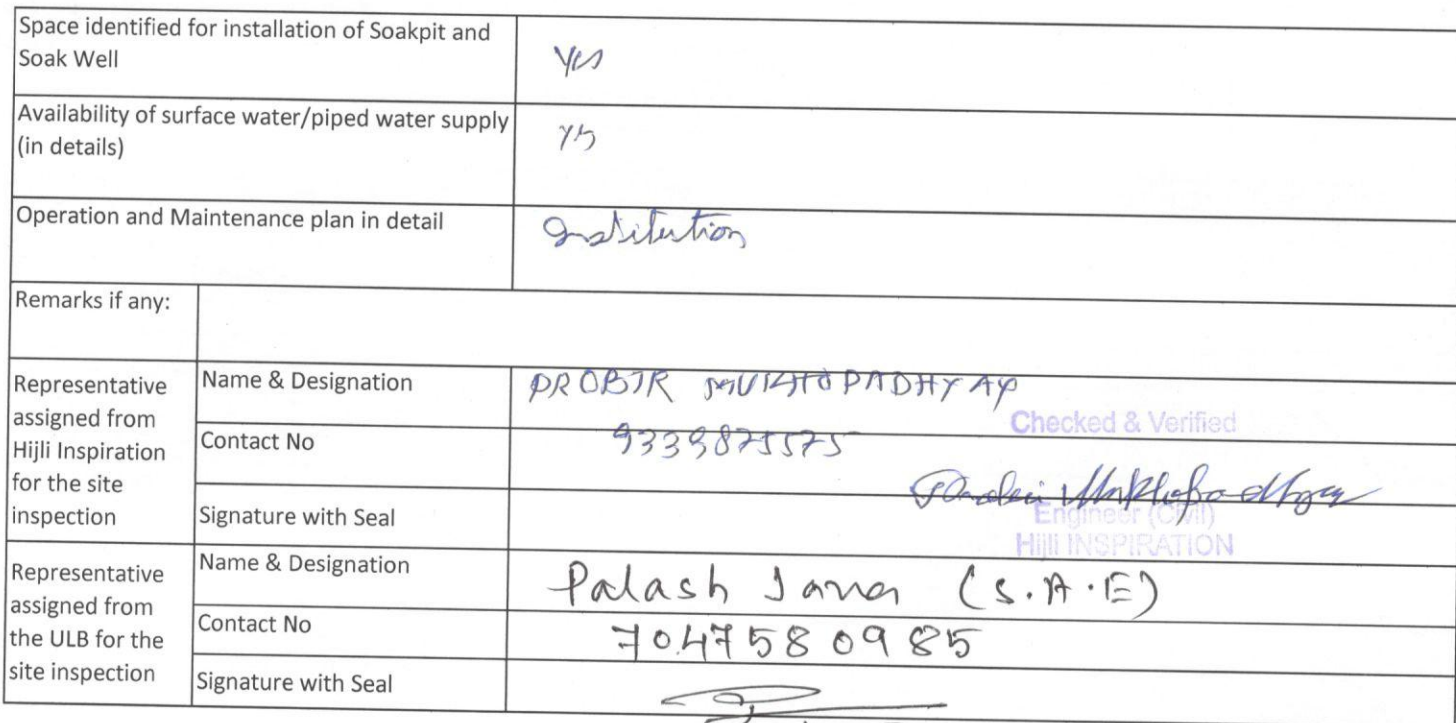 Space identified for installation of Soakpit and
Soak Well
Yes
Availability of surface water/piped water supply
(in details)
Yes
Operation and Maintenance plan in detail
Institution
Remarks if any:
Representative
assigned from
Hijli Inspiration
for the site
inspection
Name & Designation
PROBIR MUKHOPADHYAY
Checked & Verified
Contact No
9339875575
Signature with Seal
Mukhopadhyay
Engineer (Civil)
Hijli INSPIRATION
Representative
assigned from
the ULB for the
site inspection
Name & Designation
Palash Jana (S.A.E)
Contact No
7047580985
Signature with Seal